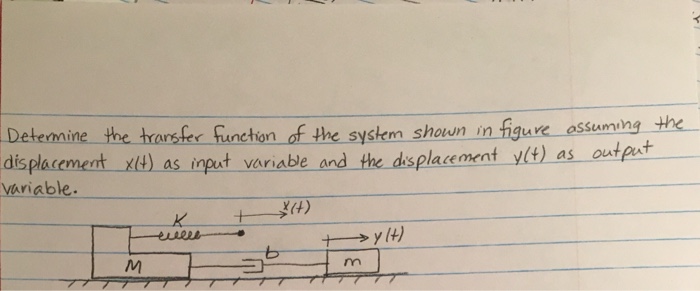 Determine the transfer function of the system shown in figure assuming the
displacement x(t) as input variable and the displacement y(t) as output
variable.
K
x(t)
y(t)
b
M
m